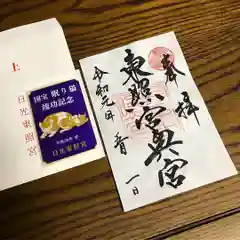 上
日光東照宮
国宝 眠り猫
竣功記念
日光東照宮
奉拝
東照宮奥宮
令和元年
一日